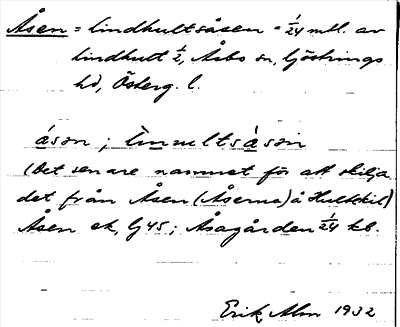 Åsen = Lindhultsåsen = 1/24 mtl. av
Lindhult 1/2, Åsbo sn, Göstrings
hd, Österg. l.
åsən ; linultsåsən
(Det senare namnet för att skilja
det från Åsen (Åserna) å Hultskil)
Åsen ek, Gj 45; Åsagården 1/24 kb.
Erik Alm 1932